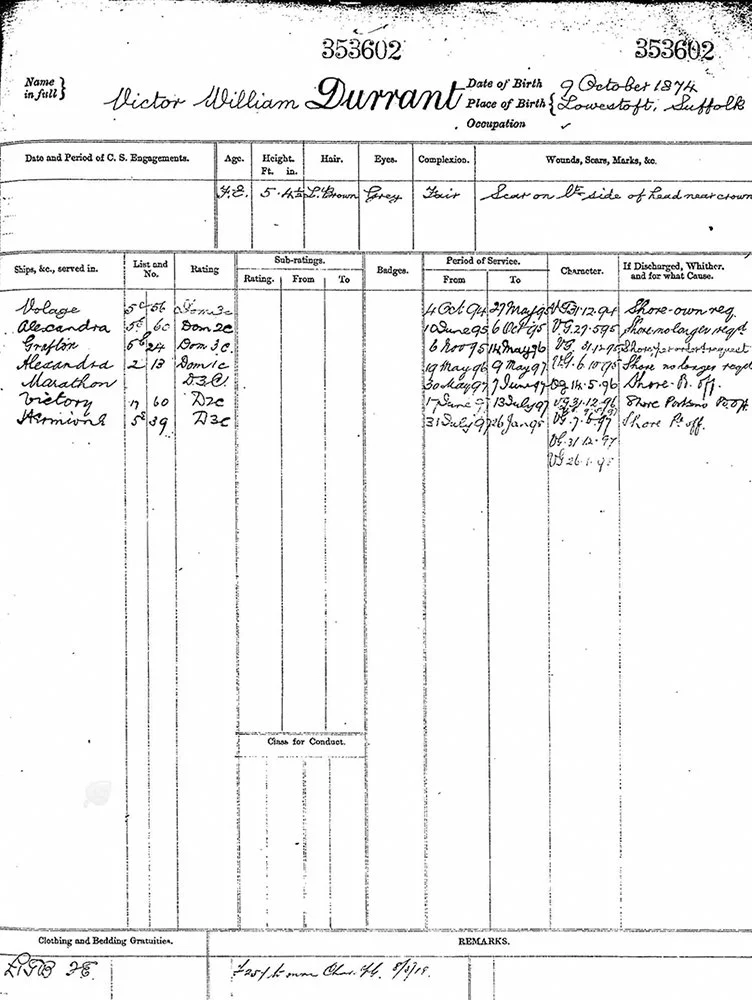 353602 353602
Name in full } Victor William Durrant
Date of Birth 9 October 1874
Place of Birth { Lowestoft, Suffolk
Occupation
Date and Period of C. S. Engagements. Age. Height. Ft. in. Hair. Eyes. Complexion. Wounds, Scars, Marks, &c.
F.E. 5. 4½ L. Brown Grey Fair Scar on lt side of head near crown
Ships, &c., served in. List and No. Rating Sub-ratings. Rating. From To Badges. Period of Service. From To Character. If Discharged, Whither, and for what Cause.
Volage 5c 56 Dom 3c 4 Oct 94 27 May 95 VG 31.12.94 Shore - own req.
Alexandra 60 Dom 2c 10 June 95 6 Oct 95 VG. 27.5.95 Shore no longer reqd
Grafton 24 Dom 3c. 6 Nov 95 14 May 96 VG 31.12.95 Shore, request
Alexandra 2 13 Dom 1c 19 May 96 9 May 97 VG. 6.10.95 Shore no longer reqd
Marathon D3C 30 May 97 7 June 97 14.5.96 Shore. P. off.
Victory 60 D2c June 13 July 97 VG 31.12.96 Shore
Hermione 39 D3c 31 July 97 26 Jan 95 VG. 97 Shore P. off.
VG. 31.12.97
VG 26.1.95
Class for Conduct.
Clothing and Bedding Gratuities. REMARKS.
FE.